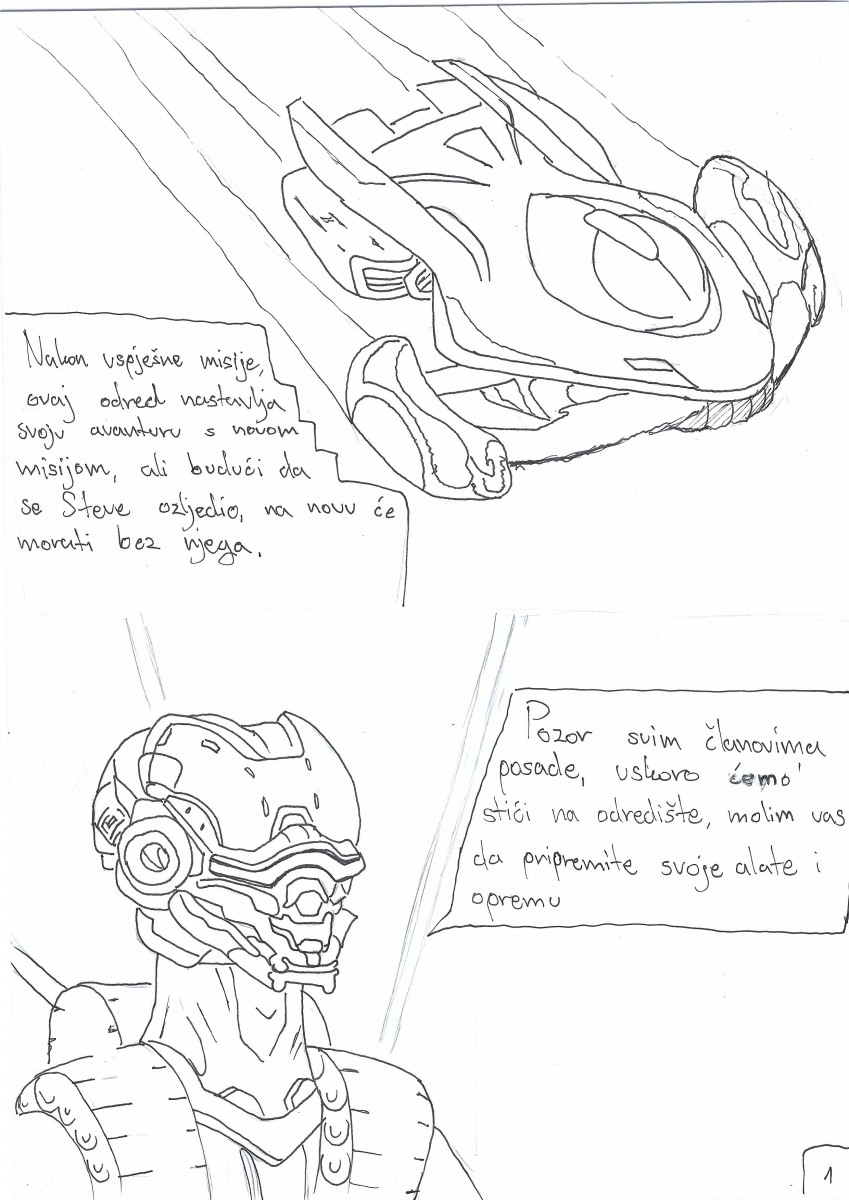 Nakon uspješne misije,
ovaj odred nastavlja
svoju avanturu s novom
misijom, ali budući da
se Steve ozljedio, na novu će
morati bez njega.
Pozor svim članovima
posade, uskoro ćemo
stići na odredište, molim vas
da pripremite svoje alate i
opremu
1